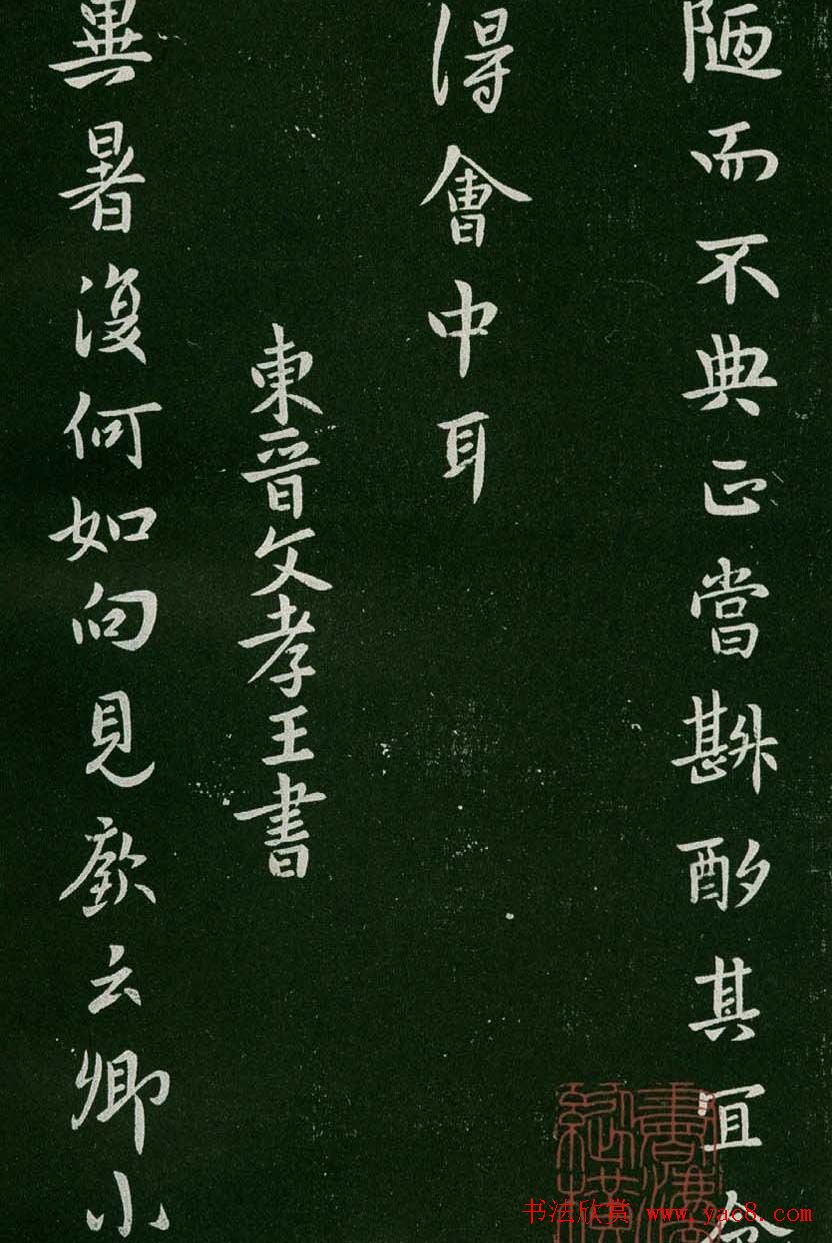 陋而不典正當斟酌其宜令
得會中耳
東晉文孝王書
異暑復何如向見歡云卿小
书法欣赏 www.yac8.com